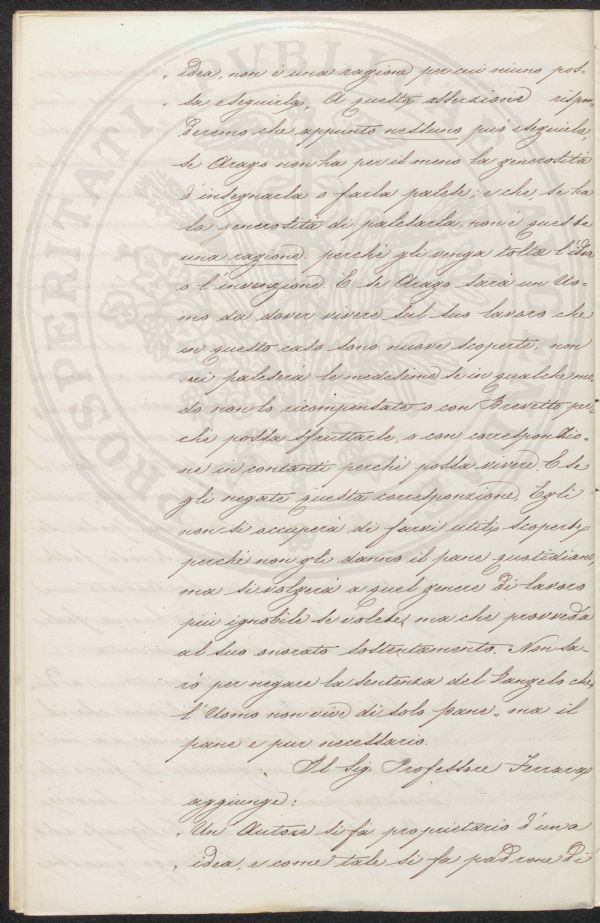 „ idea, non è una ragione per cui niuno pos-
„ sa eseguirla„. A questa asserzione rispon-
deremo che appunto nessuno può eseguirla,
se Arago non ha per il meno la generosità
d'insegnarla o farla palese; e che, se ha
la generosità di palesarla, non è questa
una ragione perchè gli venga tolta l'idea
o l'invenzione. E se Arago sarà un Uo-
mo da dover vivere sul suo lavoro che
in questo caso sono nuove scoperte, non
vi paleserà le medesime se in qualche mo-
do non lo ricompensate o con Brevetto per-
chè possa sfruttarle, o con corresponsio-
ne in contanti perchè possa vivere. E se
gli negate questa corresponsione, Egli
non si occuperà di farvi utili scoperte,
perchè non gli danno il pane quotidiano,
ma si volgerà a quel genere di lavoro
più ignobile se volete, ma che provveda
al suo onorato sostentamento. Non sa-
rò per negare la sentenza del Vangelo che
l'Uomo non vive di solo pane, ma il
pane è pur necessario.
Il Sig. Professore Ferrara
aggiunge:
„ Un Autore si fa proprietario d'una
„ idea, e come tale si fa padrone di
PROSPERITATI PVBLICAE